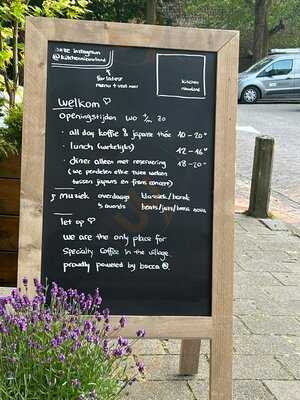 onze instagram
@kitchennieuwland
for latest
menu + veel meer
kitchen
nieuwland
Welkom ♡
openingstijden wo t/m zo
• all day koffie & japanse thee 10 - 20°°
• lunch (wekelijks) 12 - 16°°
• diner alleen met reservering 18 - 20°°
(we pendelen elke twee weken
tussen japans en frans concept)
♪ muziek overdaags klassiek/barok
's avonds beats/jazz/bossa nova
let op ♡
we are the only place for
Specialty Coffee in the village.
proudly powered by bocca ®.